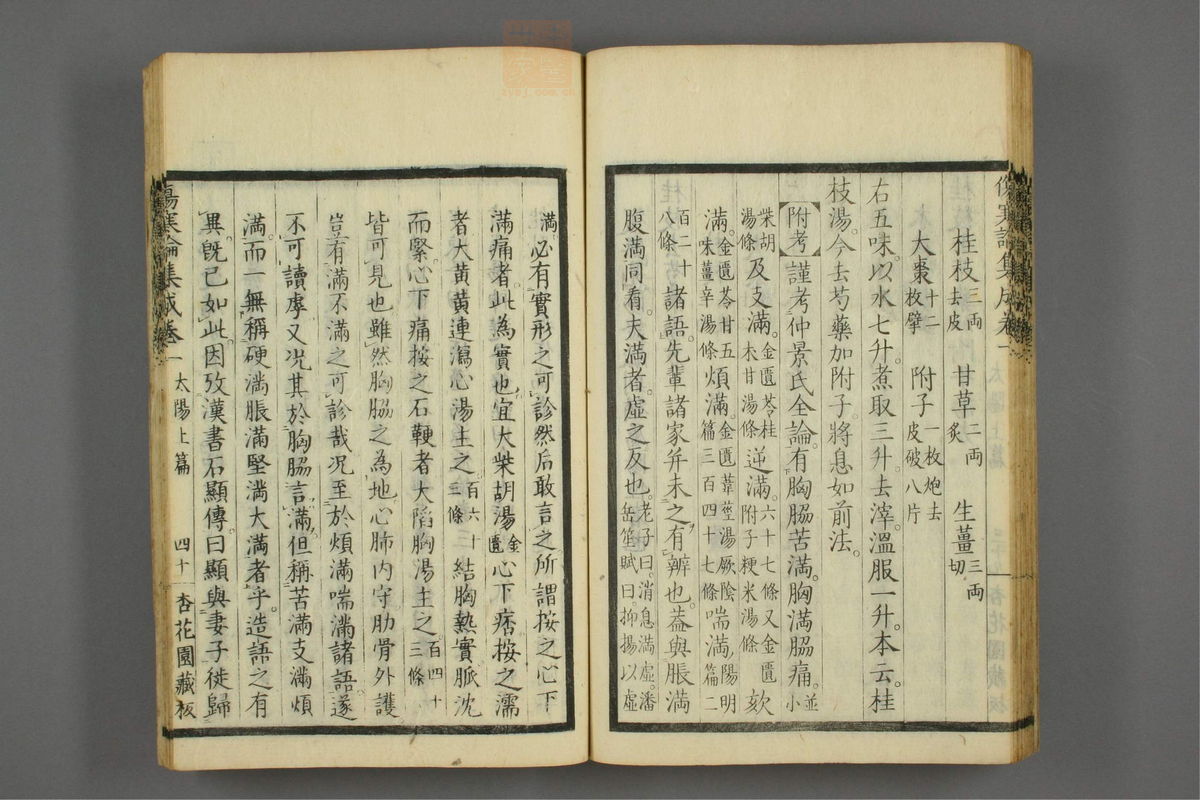 傷寒論集成卷一
桂枝三両去皮 甘草二両炙 生薑三両切
大棗十二枚擘 附子一枚炮去皮破八片
右五味。以水七升。煮取三升。去滓。溫服一升。本云。桂
枝湯。今去芍藥加附子。將息如前法。
附考 謹考仲景氏全論。有胸脇苦滿。胸滿脇痛。並小
柴胡湯條及支滿。金匱苓桂朮甘湯條逆滿。六十七條又金匱附子粳米湯條欬
滿。金匱苓甘五味薑辛湯條煩滿。金匱葦莖湯厥陰篇三百四十七條喘滿陽明篇二
百二十八條諸語。先輩諸家并未之有辨也。蓋與脹滿
腹滿同看。夫滿者。虛之反也。老子曰。消息滿虛。潘岳笙賦曰。抑揚以虛
滿必有實形之可診然后敢言之所謂按之心下
滿痛者。此為實也。宜大柴胡湯金匱心下痞按之濡
者大黃黃連瀉心湯主之。百六十三條結胸熱實脈沈
而緊。心下痛按之石鞕者大陷胸湯主之百四十三條
皆可見也雖然胸脇之為地。心肺內守肋骨外護
豈有滿不滿之可診哉况至於煩滿喘滿諸語。遂
不可讀虖又况其於胸脇言滿。但稱苦滿支滿煩
滿。而一無稱硬滿脹滿堅滿大滿者乎。造語之有
異。既已如此。因攷漢書石顯傳。曰顯與妻子徙歸
傷寒論集成卷一 太陽上篇 四十 杏花園藏板